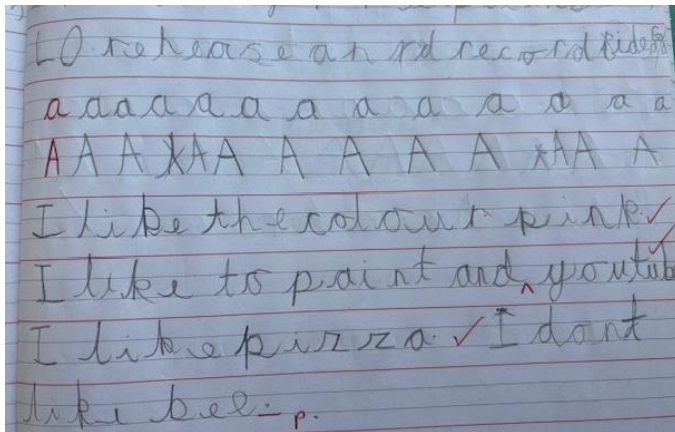 LO rehearse an rd record
a a a a a a a a a a a a a
A A A A A A A A A A A A
I like the colour pink. ✓
I like to paint and ^ youtub
I like pizza. ✓ I dont
like bee - p.